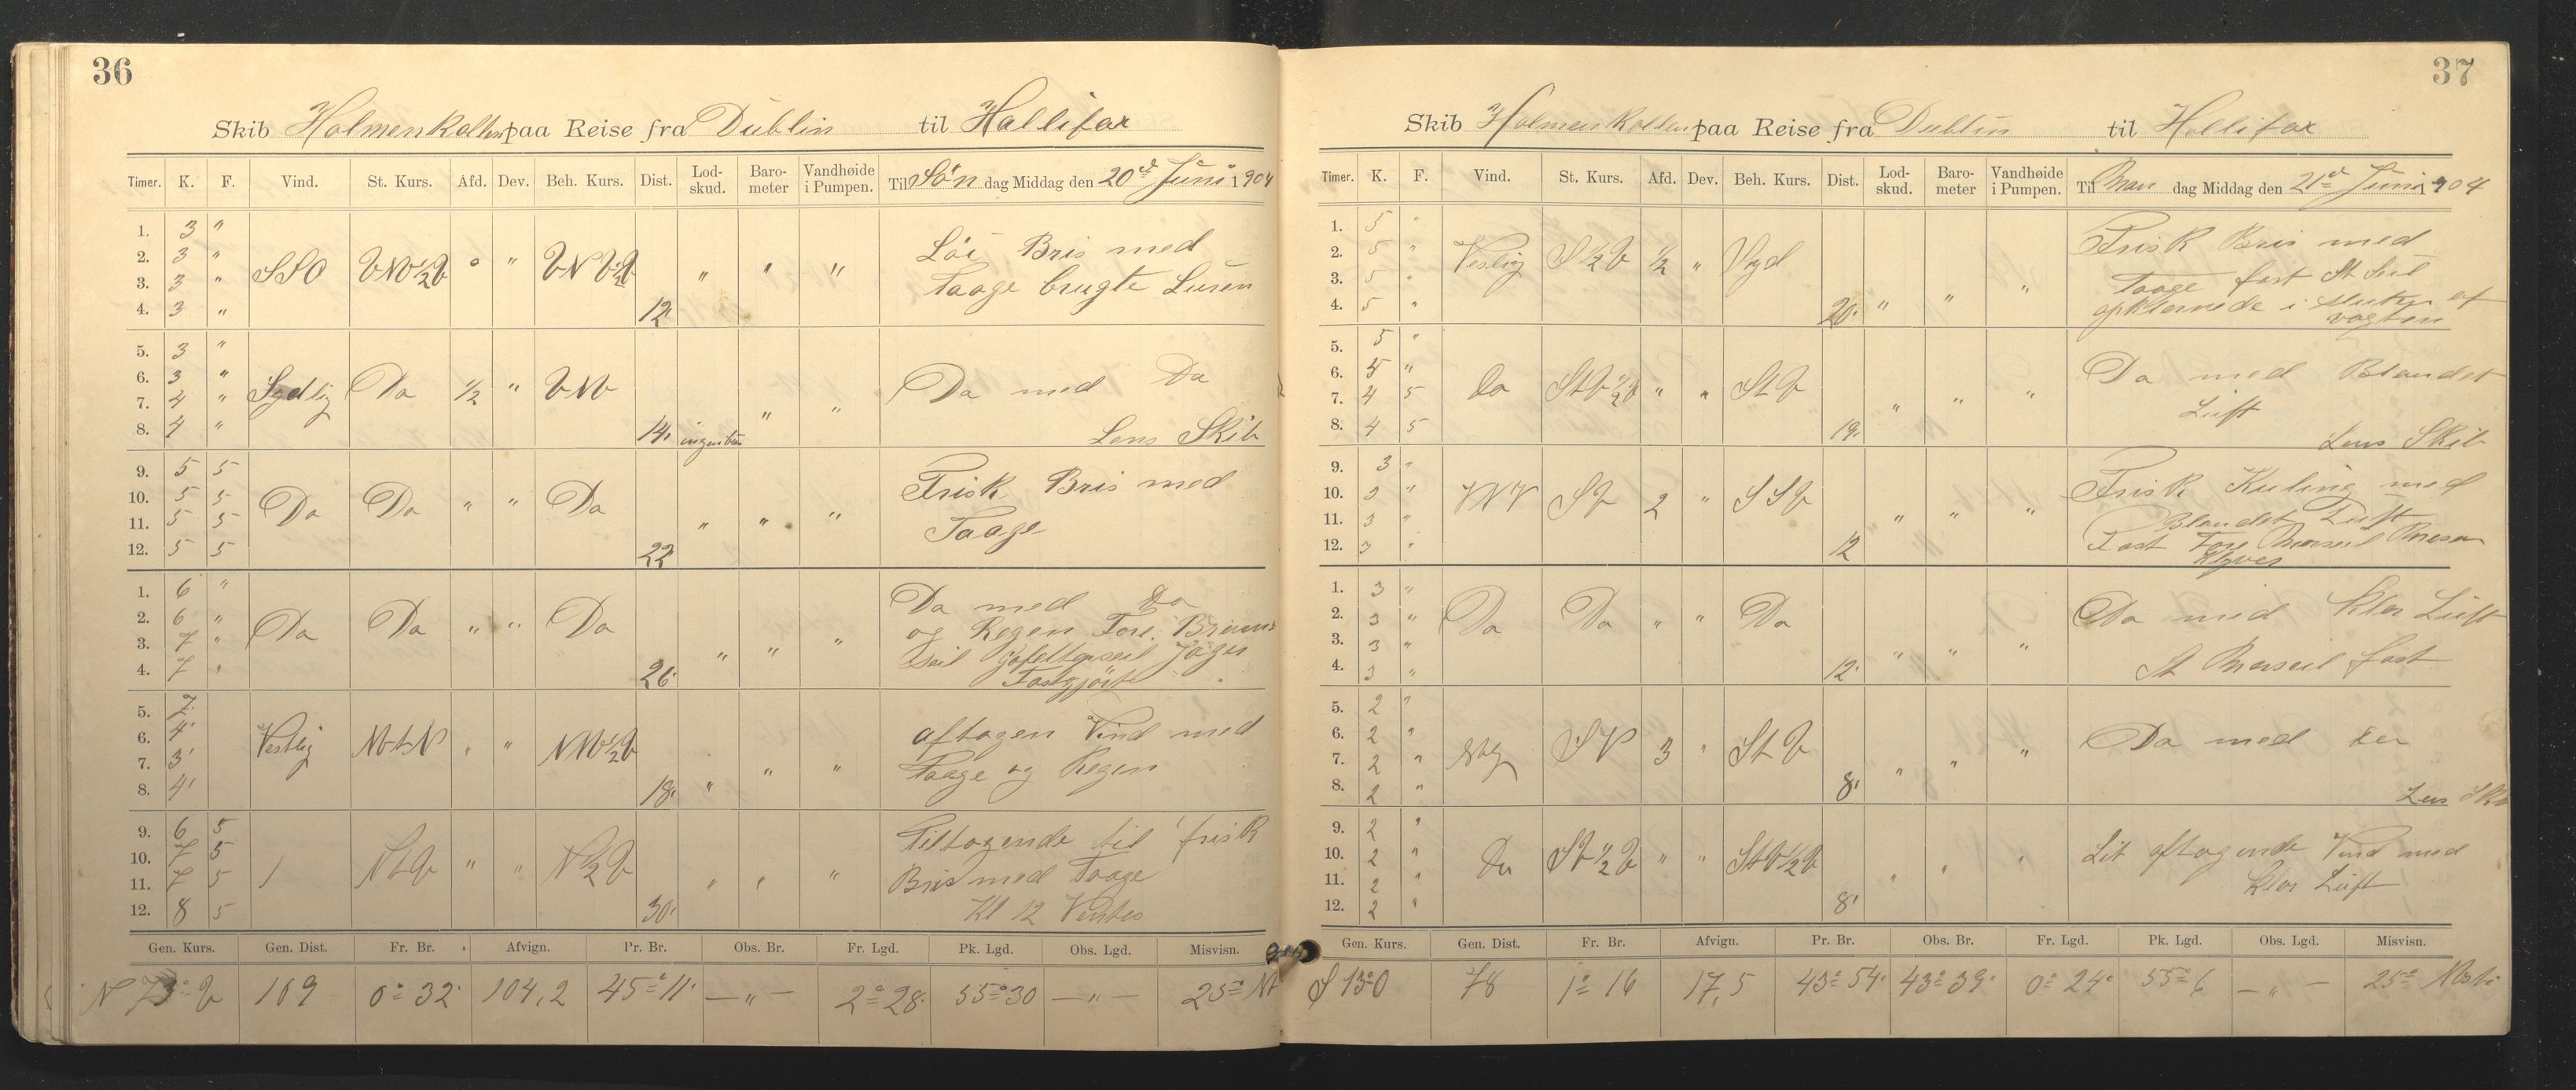 36
Skib Holmenkollen paa Reise fra Dublin til Hallifax
Timer. K. F. Vind. St. Kurs. Afd. Dev. Beh. Kurs. Dist. Lod-skud. Baro-meter Vandhøide i Pumpen. Til Søn dag Middag den 20de Juni 1904
1. 3 "
2. 3 " SSO VNV½V ° " VNV½V " " " Løi Bris med
3. 3 " Taage brugte Luren
4. 3 " 12.
5. 3 "
6. 3 " Sydlig Do ½ " VNV Do med Do
7. 4 " " "
8. 4 " 14. Lens Skib
9. 5 5 Frisk Bris med
10. 5 5 Do Do " " Do " " "
11. 5 5 Taage
12. 5 5 22
1. 6 " Do med Do
2. 6 " Do Do " " Do og Regen Fore.
3. 7 " " " " Seil Gaffeltopseil Jager
4. 7 " 26. Fastgjort
5. 7.
6. 4. Vestlig NVtN " " NNV½V aftagen Vind med
7. 3' " " " Taage og Regen
8. 4' 18.
9. 6 5 Tiltagende til frisk
10. 7 5 NtV " " N½V Bris med Taage
11. 7 5 " " "
12. 8 5 30. Kl 12 Ventes
Gen. Kurs. Gen. Dist. Fr. Br. Afvign. Pr. Br. Obs. Br. Fr. Lgd. Pk. Lgd. Obs. Lgd. Misvisn.
N 73° V 109 0° 32' 104,2 45° 11' — " — 2° 28' 55° 30 — " — 25°
37
Skib Holmenkollen paa Reise fra Dublin til Hallifax
Timer. K. F. Vind. St. Kurs. Afd. Dev. Beh. Kurs. Dist. Lod-skud. Baro-meter Vandhøide i Pumpen. Til Man dag Middag den 21de Juni 1904
1. 5 " Frisk Bris med
2. 5 " Vestlig S½V ½ " Syd
3. 5 " Taage fast St Seil
4. 5 " 20. " " " opklarnede i slutten af vagten
5. 5 "
6. 5 " Do StV½V " " StV Do med Blandet
7. 4 5 " " " Luft
8. 4 5 19. Lens Skib
9. 3 " Frisk Kuling med
10. 3 " VNV SV 2 " SSV
11. 3 " " " " Blandet Luft
12. 3 " 12 Fast Fore Merseil Mesan
Klyver
1. 3 " Do med klar Luft
2. 3 " Do Do " " Do
3. 3 " " " "
4. 3 " 12. St Merseil fast
5. 2 "
6. 2 " SV 3 " StV Do med
7. 2 " " " "
8. 2 " 8' Lens Skib
9. 2 "
10. 2 " Do SV½V " " StV½V Lit aftagende Vind med
11. 2 " " " " klar Luft
12. 2 " 8'
Gen. Kurs. Gen. Dist. Fr. Br. Afvign. Pr. Br. Obs. Br. Fr. Lgd. Pk. Lgd. Obs. Lgd. Misvisn.
S 13° O 78 1° 16 17,5 43° 54' 43° 39' 0° 24' 55° 6 — " — 25°